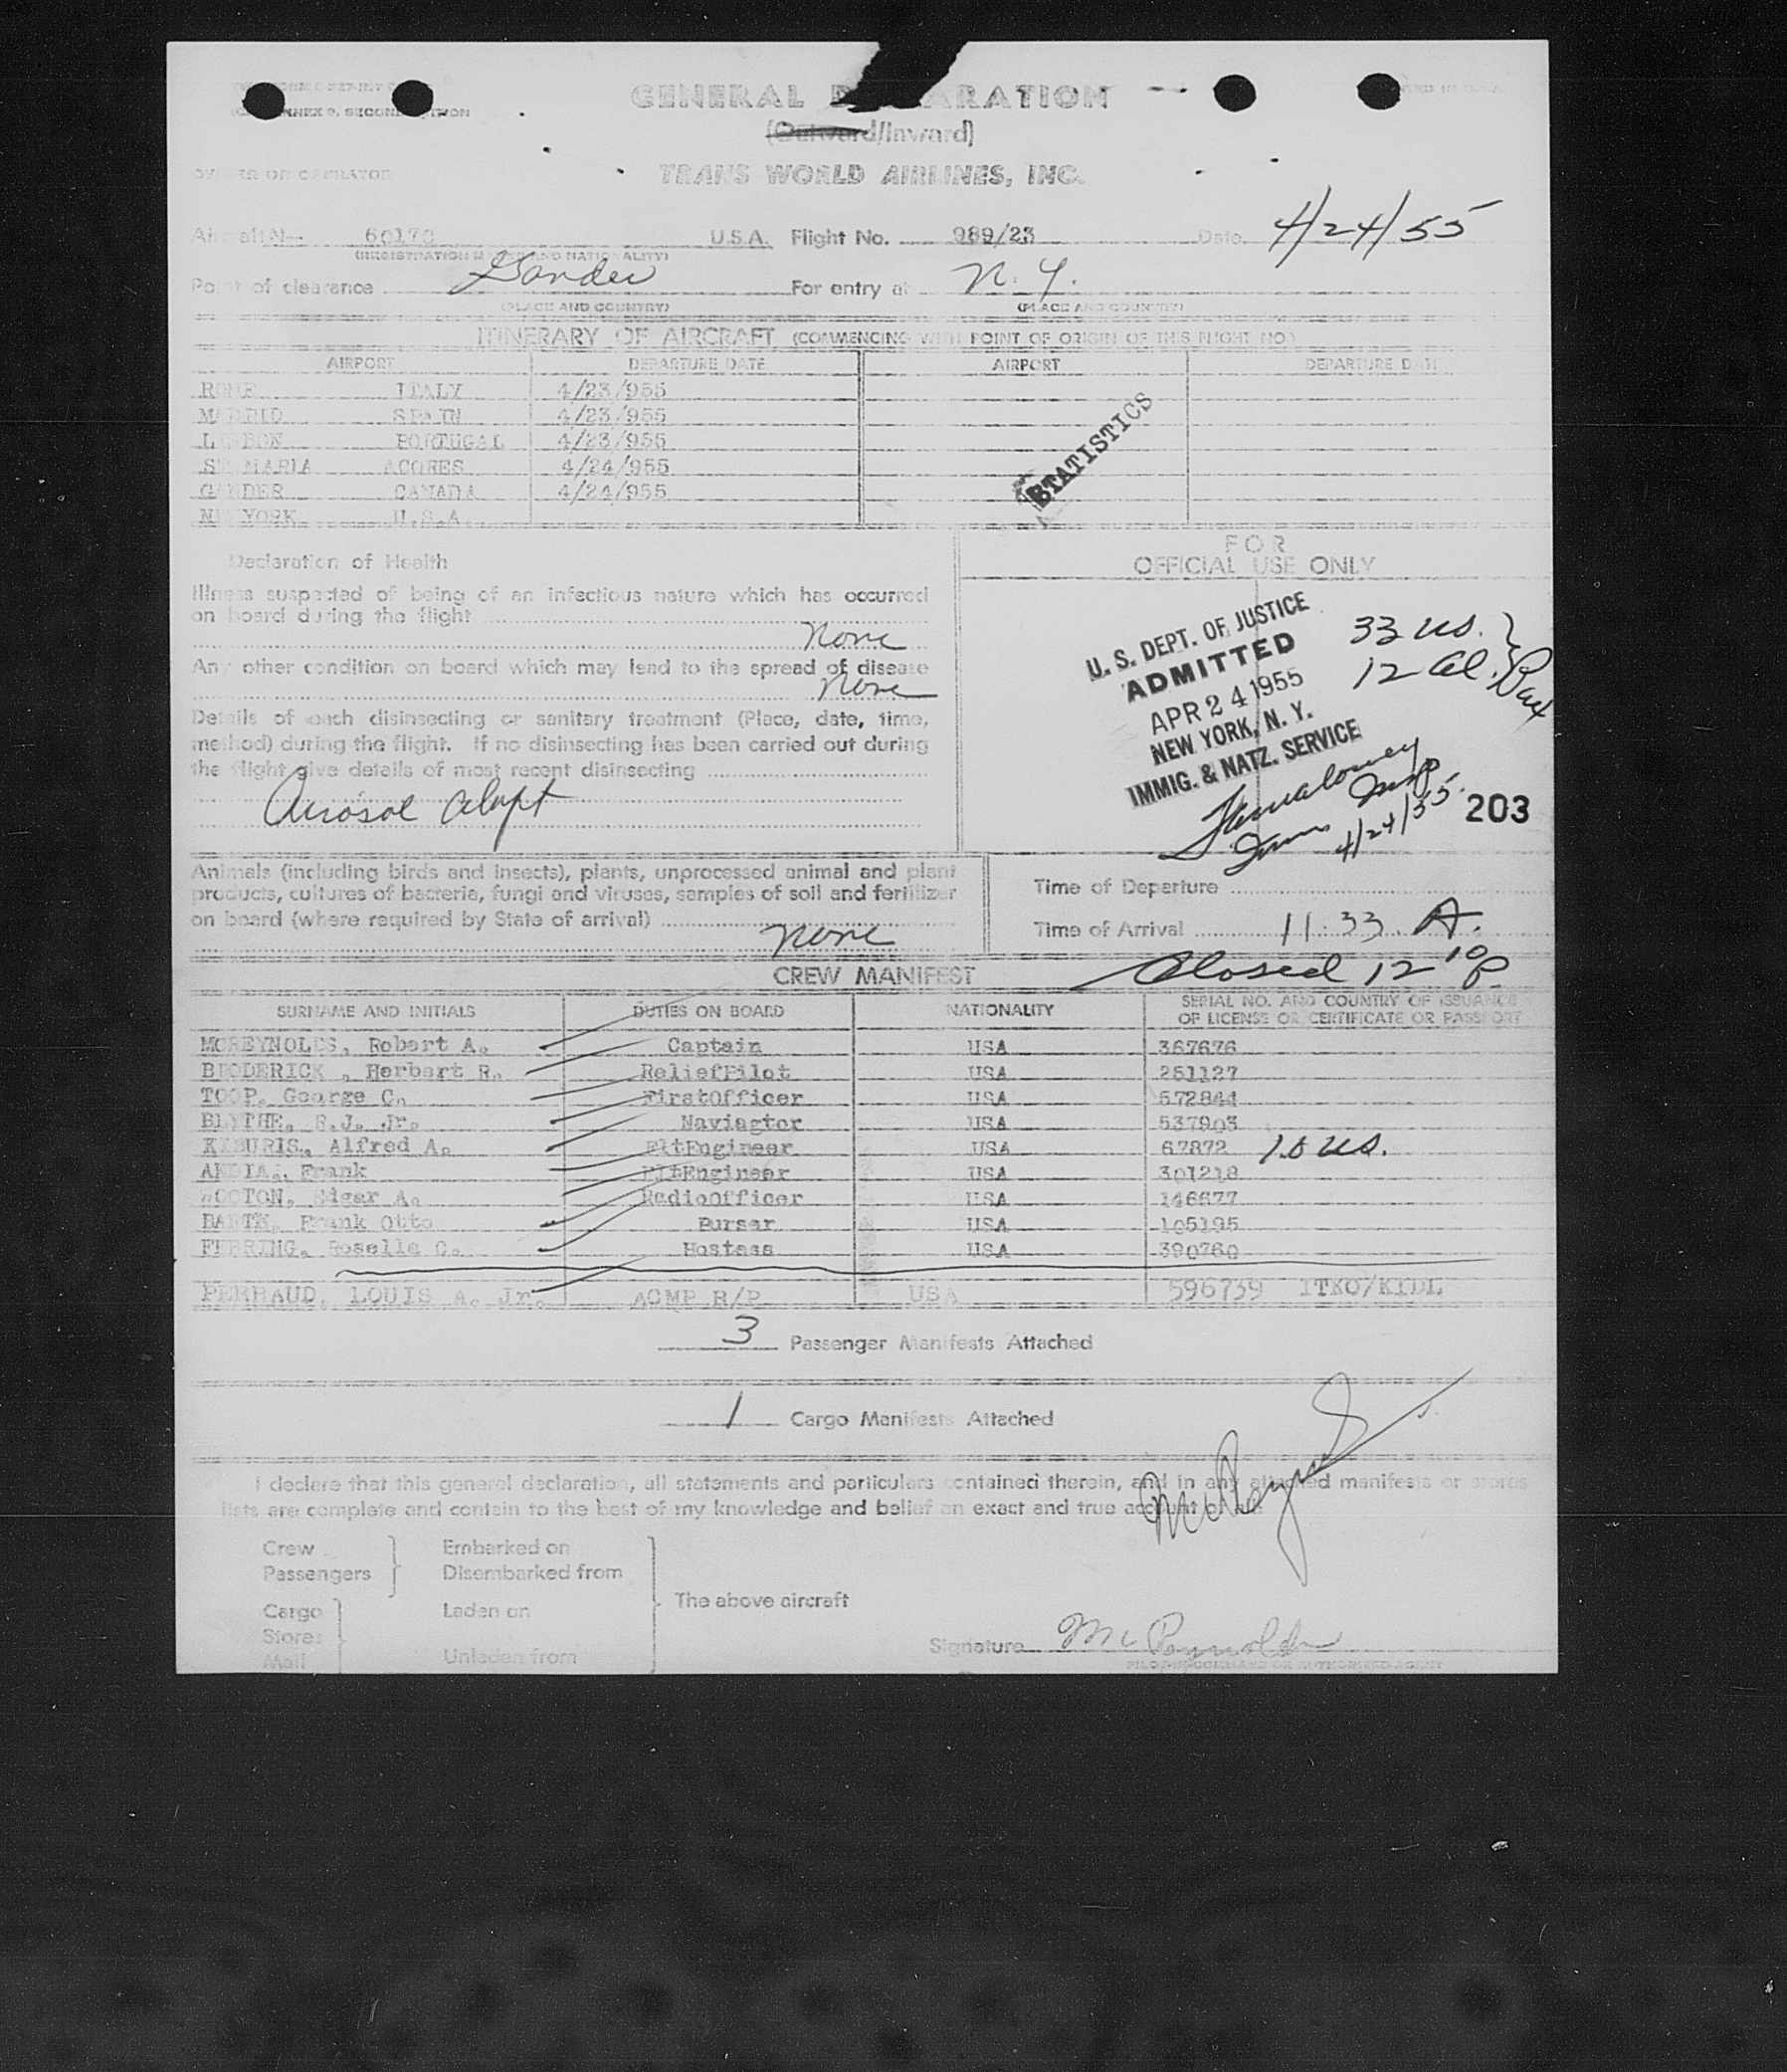 GENERAL D ARATION
(Outward/Inward)
TRANS WORLD AIRLINES, INC.
Aircraft No 60170 U.S.A. Flight No. 989/23 Date 4/24/55
(REGISTRATION MARKS AND NATIONALITY)
Point of clearance Gander For entry at N.Y.
(PLACE AND COUNTRY) (PLACE AND COUNTRY)
ITINERARY OF AIRCRAFT (COMMENCING WITH POINT OF ORIGIN OF THIS FLIGHT NO.)
AIRPORT DEPARTURE DATE AIRPORT DEPARTURE DATE
ROME ITALY 4/23/955
MADRID SPAIN 4/23/955
LISBON PORTUGAL 4/23/955
STA MARIA ACORES 4/24/955
GANDER CANADA 4/24/955
NEW YORK U.S.A.
STATISTICS
Declaration of Health
Illness suspected of being of an infectious nature which has occurred
on board during the flight
None
Any other condition on board which may lead to the spread of disease
None
Details of each disinsecting or sanitary treatment (Place, date, time,
method) during the flight. If no disinsecting has been carried out during
the flight give details of most recent disinsecting
Aerosol
FOR
OFFICIAL USE ONLY
U. S. DEPT. OF JUSTICE
ADMITTED
APR 24 1955
NEW YORK, N. Y.
IMMIG. & NATZ. SERVICE
33 US.
12 al. Pax
4/24/55
203
Animals (including birds and insects), plants, unprocessed animal and plant
products, cultures of bacteria, fungi and viruses, samples of soil and fertilizer
on board (where required by State of arrival)
None
Time of Departure
Time of Arrival 11:33 A.
Closed 12 10 P.
CREW MANIFEST
SURNAME AND INITIALS DUTIES ON BOARD NATIONALITY SERIAL NO. AND COUNTRY OF ISSUANCE
OF LICENSE OR CERTIFICATE OR PASSPORT
MCREYNOLDS, Robert A. Captain USA 367676
BRODERICK , Herbert R. ReliefPilot USA 251127
TOOP, George C. FirstOfficer USA 572844
BLYTHE, S.J. Jr. Naviagtor USA 537903
KIBURIS, Alfred A. FltEngineer USA 67872 10 US.
ANDIA, Frank FltEngineer USA 301218
WOOTON, Edgar A. RadioOfficer USA 146677
BARTH, Frank Otto Pursar USA 105195
FEHRING, Roselle C. Hostess USA 390760
PERRAUD, LOUIS A. Jr. ACMP R/P USA 596739 ITKO/KIDL
3 Passenger Manifests Attached
1 Cargo Manifests Attached
I declare that this general declaration, all statements and particulars contained therein, and in any attached manifests or stores
lists are complete and contain to the best of my knowledge and belief an exact and true account of all
Crew
Passengers
Embarked on
Disembarked from
Cargo
Stores
Mail
Laden on
Unladen from
The above aircraft
Signature McReynolds
PILOT-IN-COMMAND OR AUTHORIZED AGENT